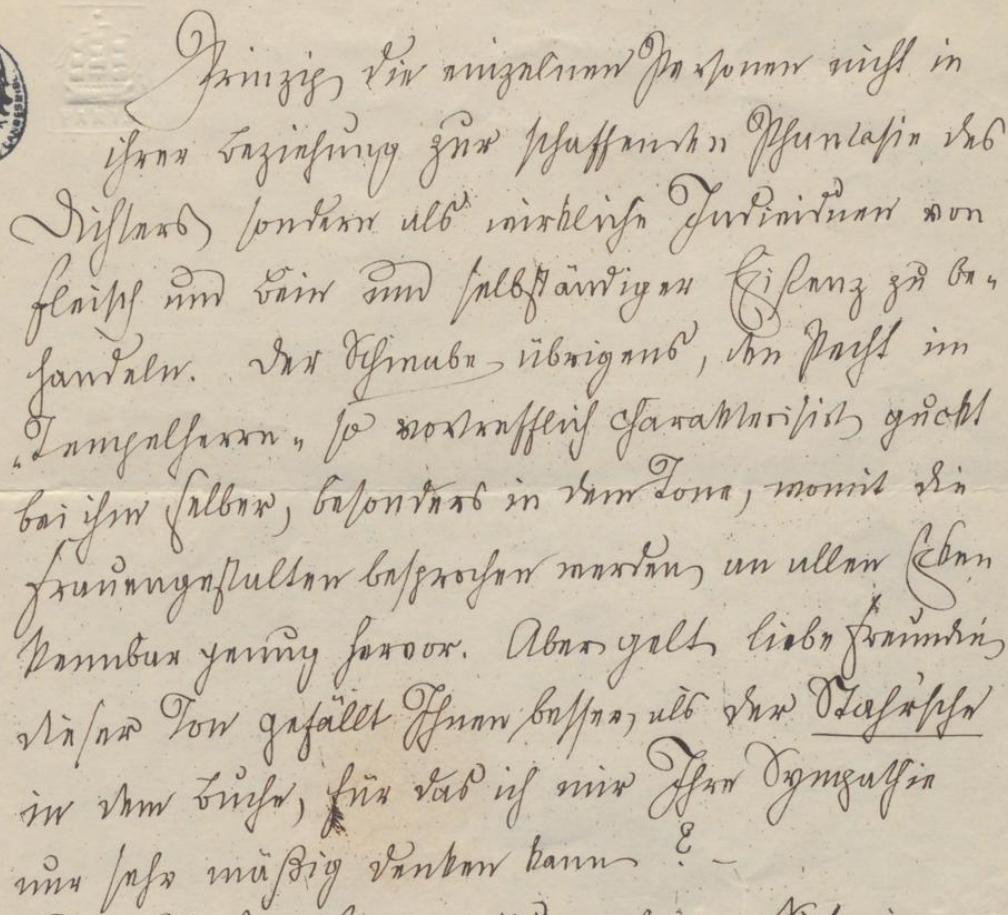 Prinzip, die einzelnen Personen nicht in
ihrer Beziehung zur schaffenden Phantasie des
Dichters, sondern als wirkliche Individuen von
Fleisch und Bein und selbständiger Existenz zu be-
handeln. Der Schwabe übrigens, den Pecht im
„Tempelherrn“ so vortrefflich charakterisirt, guckt
bei ihm selber, besonders in dem Tone, womit die
Frauengestalten besprochen werden, an allen Ecken
kennbar genug hervor. Aber gelt, liebe Freundin,
dieser Ton gefällt Ihnen besser, als der Stahr'sche
in dem Buche, für das ich mir Ihre Sympathie
nur sehr mäßig denken kann? –